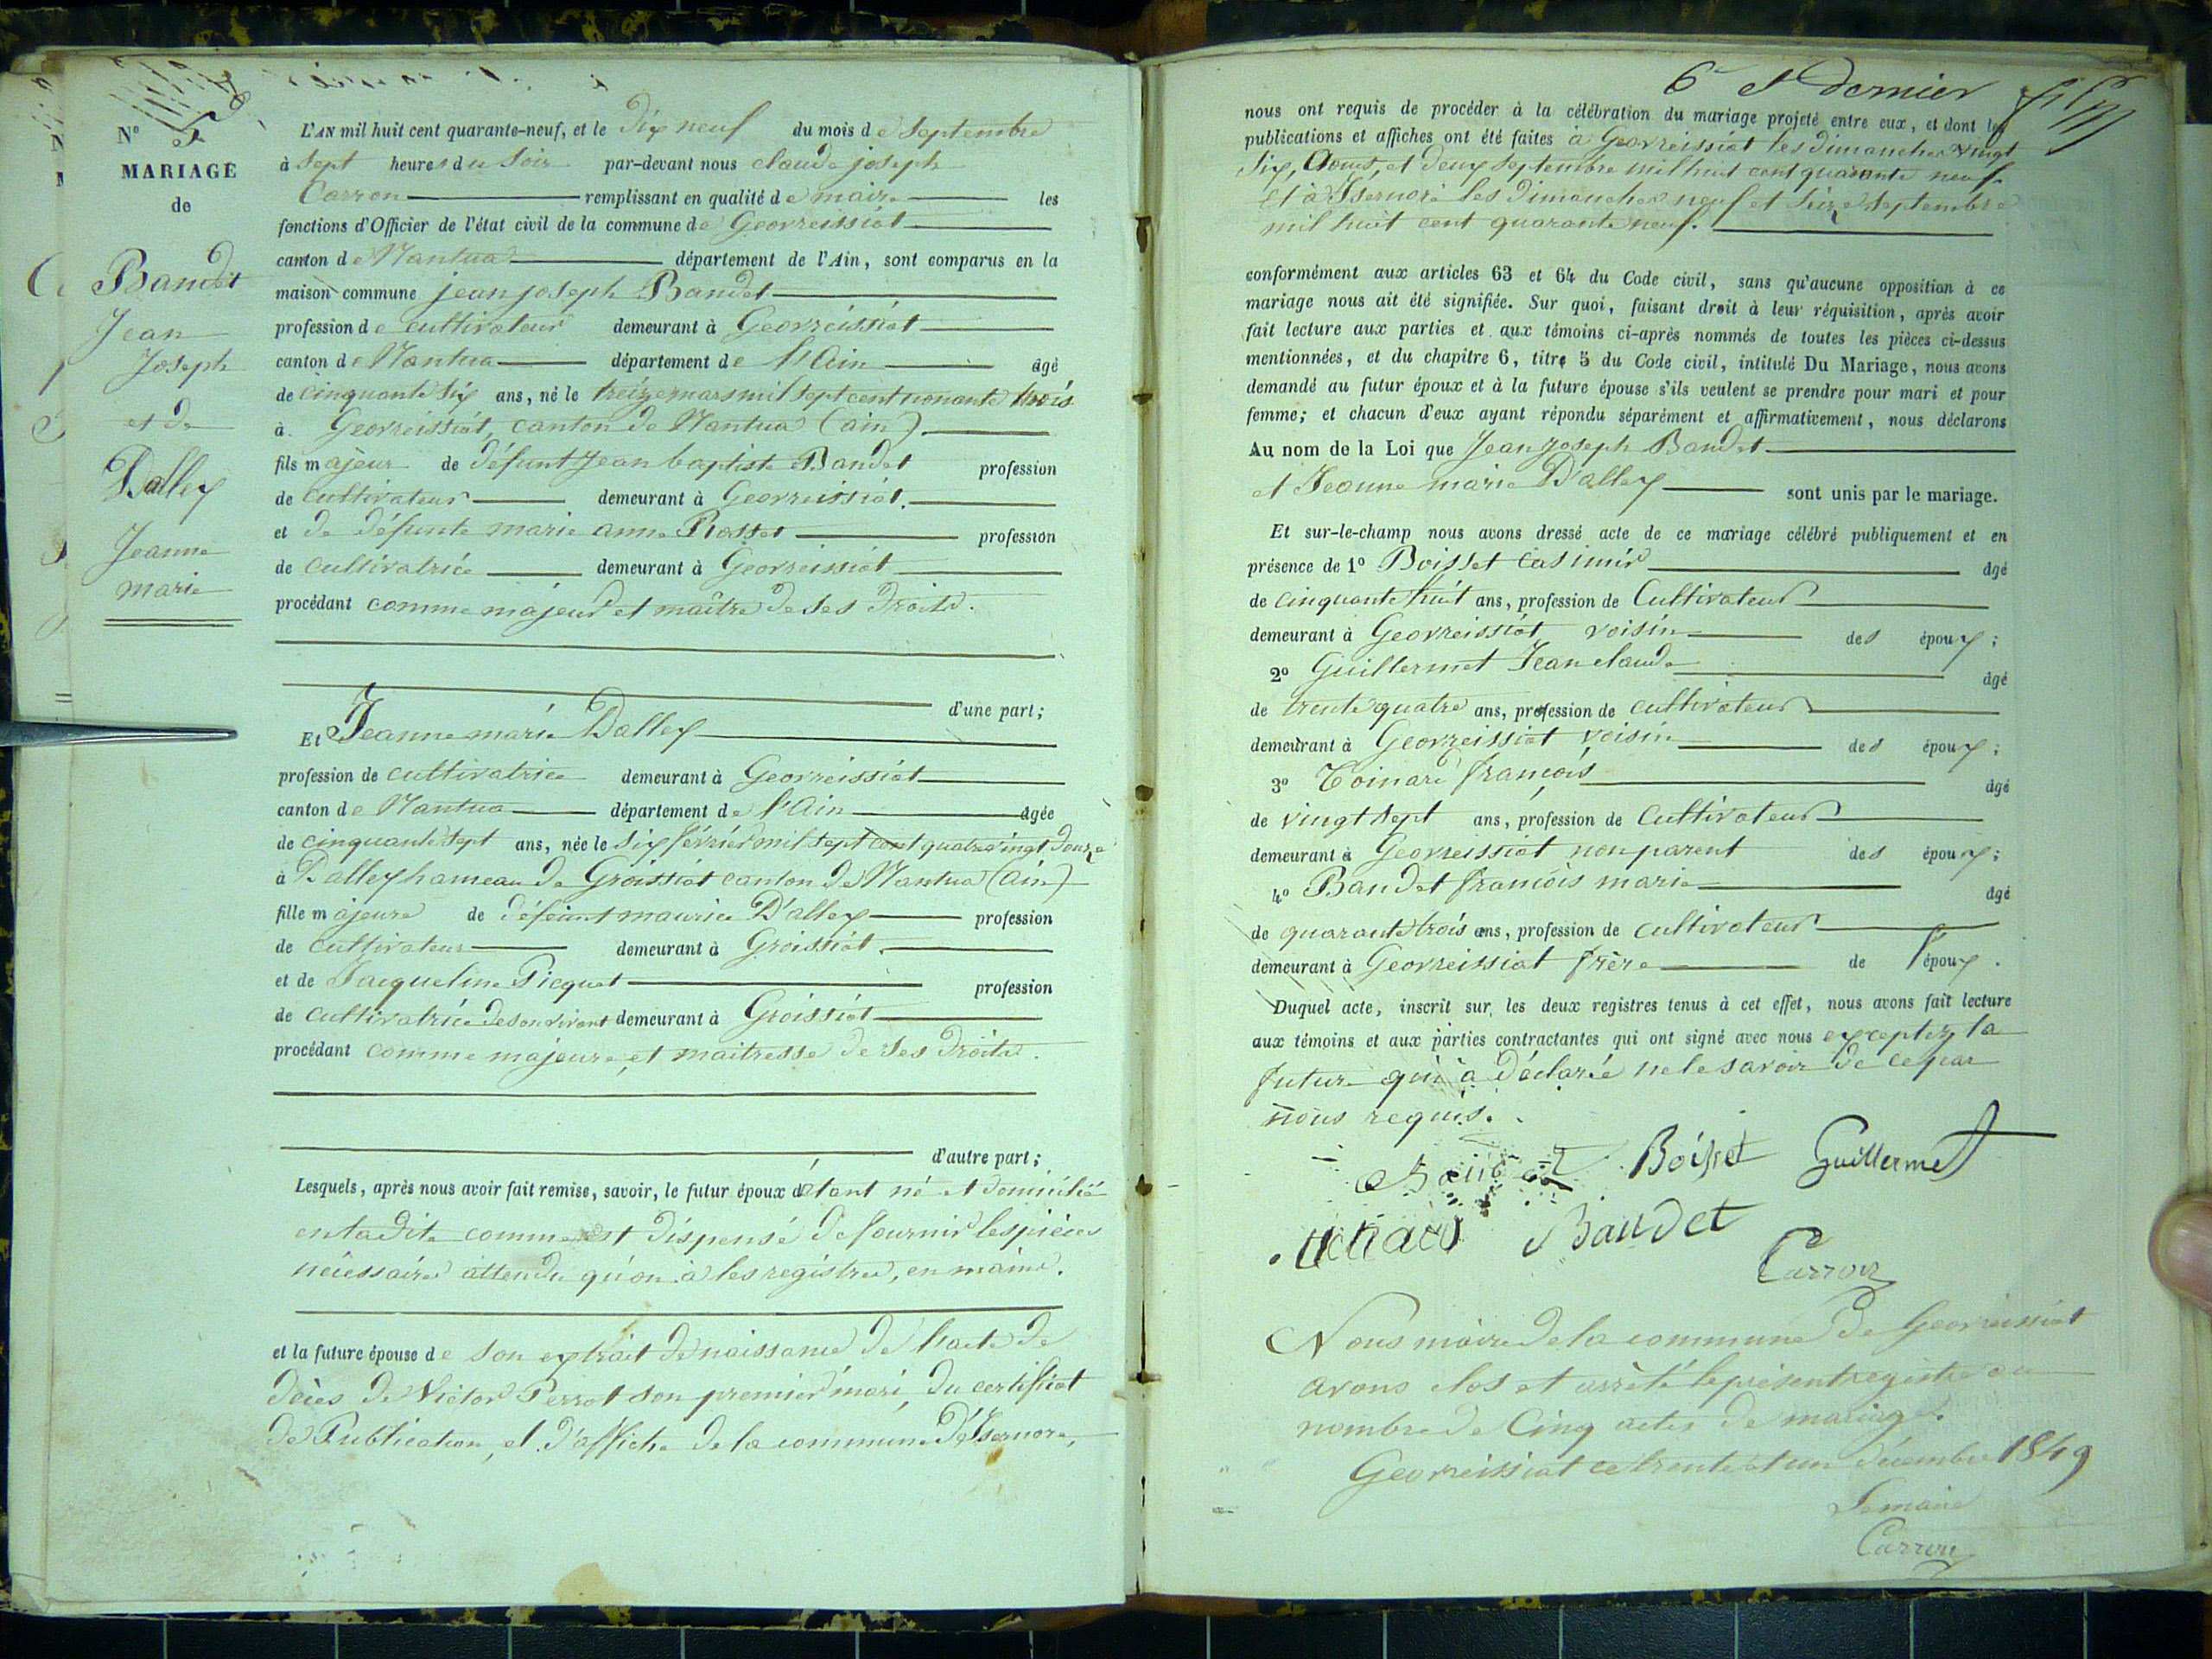 N° 5
MARIAGE
de
Baudet
Jean
Joseph
et de
Dalley
Jeanne
marie
L'AN mil huit cent quarante-neuf, et le dix neuf du mois de Septembre
à sept heures du Soir par-devant nous claude joseph
Carron remplissant en qualité de maire les
fonctions d'Officier de l'état civil de la commune de Geovreissiat
canton de Nantua département de l'Ain, sont comparus en la
maison commune jean joseph Baudet
profession de cultivateur demeurant à Geovreissiat
canton de Nantua département de l'Ain âgé
de cinquante Six ans, né le treize mars mil sept cent nonante trois
à Geovreissiat, canton de Nantua (ain).
fils majeur de défunt Jean baptiste Baudet profession
de cultivateur demeurant à Geovreissiat.
et de défunte marie anne Rosset profession
de cultivatrice demeurant à Geovreissiat
procédant comme majeur et maître de ses droits.
d'une part;
Et Jeanne marie Dalley
profession de cultivatrice demeurant à Geovreissiat
canton de Nantua département de l'Ain âgée
de cinquante sept ans, née le six février mil sept cent quatre vingt douze
à Dalley hameau de Groissiat canton de Nantua (Ain)
fille majeure de défunt maurice D'alley profession
de cultivateur demeurant à Groissiat.
et de Jacqueline Picquet profession
de cultivatrice de son vivant demeurant à Groissiat
procédant comme majeure, et maitresse de ses droits.
d'autre part;
Lesquels, après nous avoir fait remise, savoir, le futur époux étant né et domicilié
en la dite comme est dispensé de fournir les pièces
nécessaires attendu qu'on à les registres, en mains.
et la future épouse de son extrait de naissance de l'acte de
décès de Victor Perrot son premier mari, du certificat
de Publication, et d'affiche de la commune d'Isernore,
6e et dernier
nous ont requis de procéder à la célébration du mariage projeté entre eux, et dont les
publications et affiches ont été faites à Geovreissiat les dimanches vingt
Six, Aout, et deux septembre mil huit cent quarante neuf.
et à Isernore les dimanches neuf et seize septembre
mil huit cent quarante neuf.
conformément aux articles 63 et 64 du Code civil, sans qu'aucune opposition à ce
mariage nous ait été signifiée. Sur quoi, faisant droit à leur réquisition, après avoir
fait lecture aux parties et aux témoins ci-après nommés de toutes les pièces ci-dessus
mentionnées, et du chapitre 6, titre 5 du Code civil, intitulé Du Mariage, nous avons
demandé au futur époux et à la future épouse s'ils veulent se prendre pour mari et pour
femme; et chacun d'eux ayant répondu séparément et affirmativement, nous déclarons
Au nom de la Loi que Jean joseph Baudet
et Jeanne marie D'alley sont unis par le mariage.
Et sur-le-champ nous avons dressé acte de ce mariage célébré publiquement et en
présence de 1° Boisset Casimir âgé
de cinquante huit ans, profession de Cultivateur
demeurant à Geovreissiat voisin des époux;
2° Guillermet Jean claude âgé
de trente quatre ans, profession de cultivateur
demeurant à Geovreissiat voisin des époux;
3° Toinard françois âgé
de vingt sept ans, profession de Cultivateur
demeurant à Geovreissiat non parent des époux;
4° Baudet francois marie âgé
de quarante trois ans, profession de cultivateur
demeurant à Geovreissiat frère de l'époux.
Duquel acte, inscrit sur les deux registres tenus à cet effet, nous avons fait lecture
aux témoins et aux parties contractantes qui ont signé avec nous exceptez la
future qui à déclarée ne le savoir de ce par
nous requis.
Boisset Guillermet
Baudet
Carron
Nous maire de la commune de Geovreissiat
avons clos et arrêté le présent registre au
nombre de Cinq actes de mariages.
Geovreissiat ce trente et un décembre 1849
Le maire
Carron